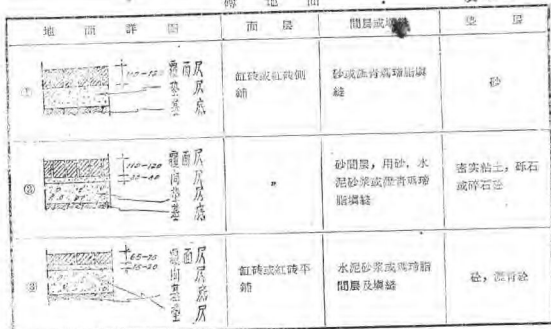 砖 地 面
地 面 詳 图 面 层 間层或填縫 垫 层
① 110-120 覆面层 垫层 基底 缸砖或紅砖側鋪 砂或瀝青瑪𤧛脂填縫 砂
② 110-120 覆面层 間层 垫层 基底 〃 砂間层，用砂，水泥砂浆或瀝青瑪𤧛脂填縫 密实粘土，砾石或碎石
③ 65-75 15-20 覆面层 間层 基底 垫层 缸砖或紅砖平鋪 水泥砂浆或瑪𤧛脂間层及填縫 砼，瀝青砼